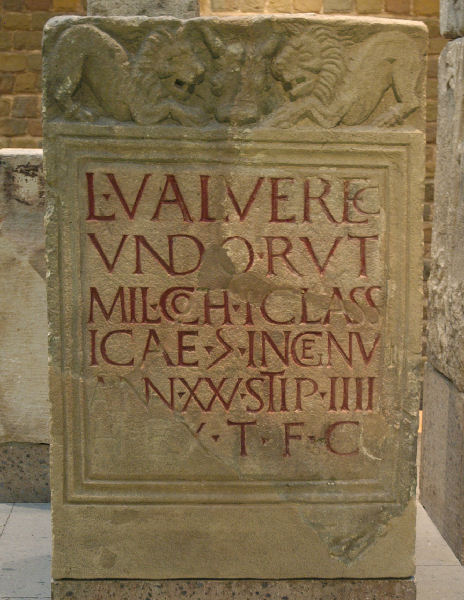 L·VALVEREC
VNDO·RVT
MIL·COH·I·CLASS
ICAE·S·INGENV
ANN·XXV·STIP·IIII
V·T·F·C